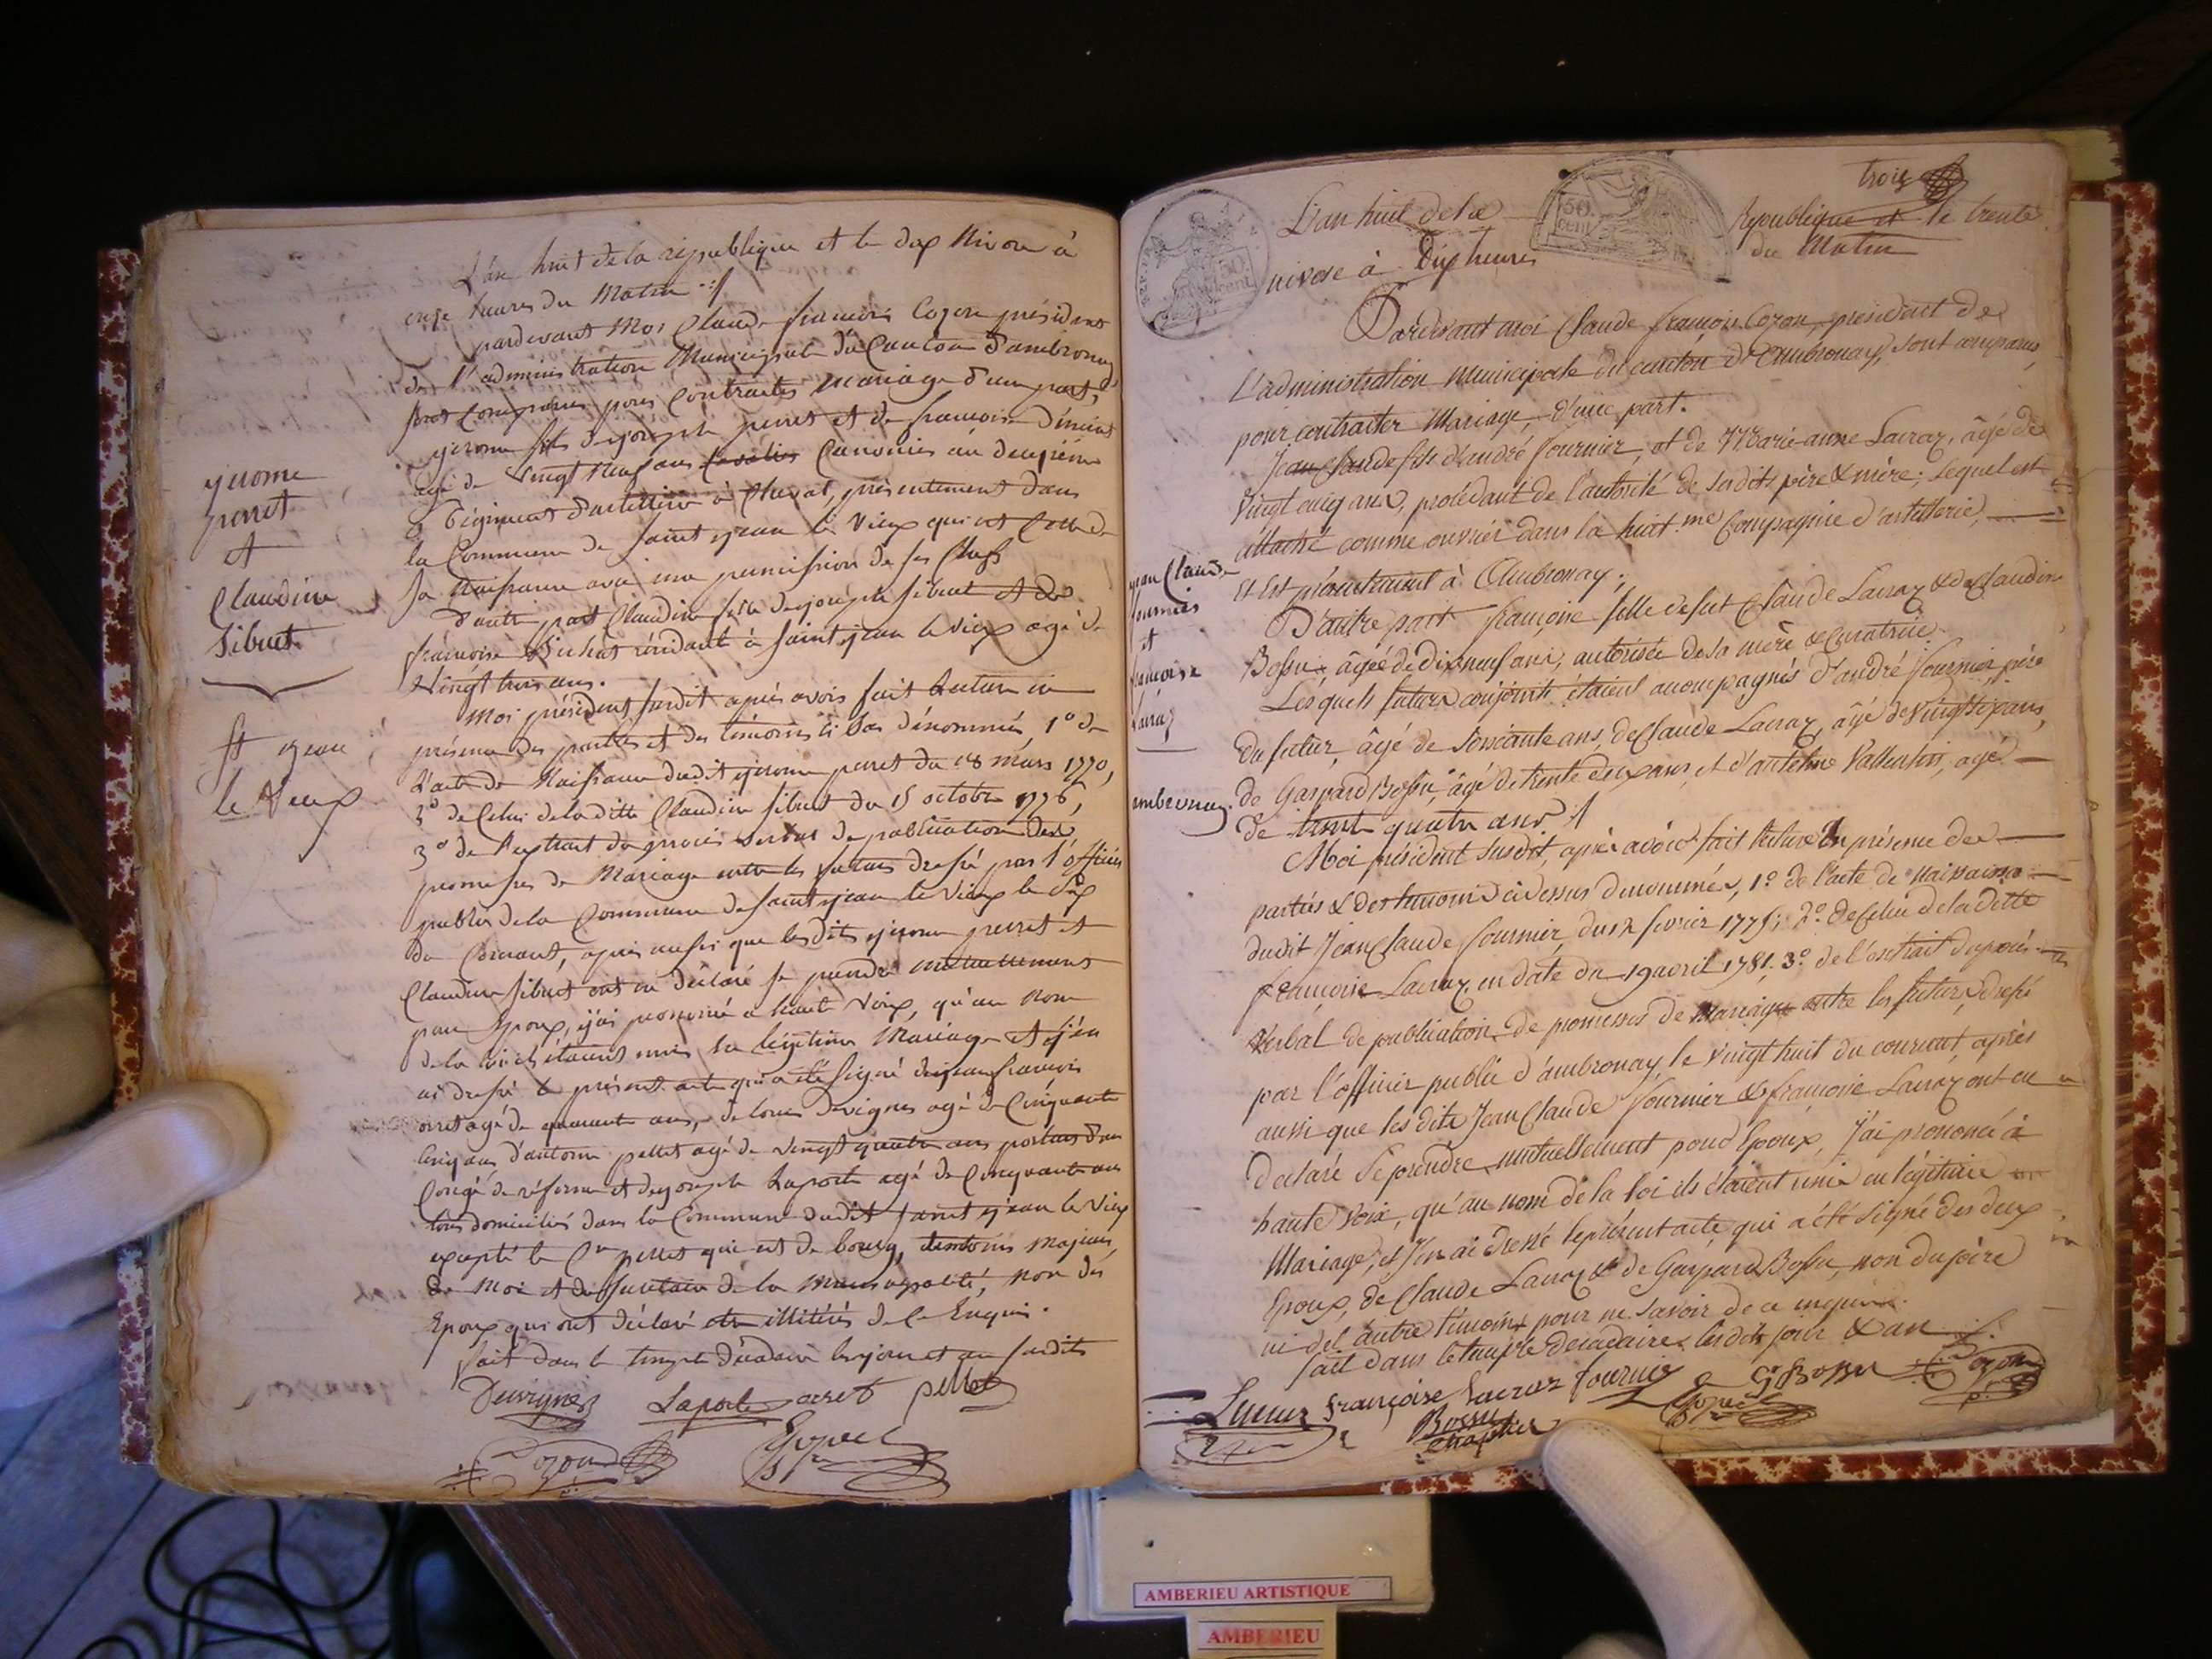 L'an huit de la république et le dix Nivose à
onze heures du Matin
pardevant Moi Claude françois Cozon président
de l'administration Municipale du Canton d'ambronay
sont Comparus pour Contracter Mariage d'une part,
yerome fils de joseph perret et de francoise
agé de vingt Neuf ans Canonier au deuxième
Régiment d'artillerie à Cheval, présentement dans
la Commune de saint jean le Vieux qui est Celle de
sa Naissance avec une permission de ses Chefs
d'autre part Claudine fille de joseph sibuet et de
françoise résidant à saint jean le vieux agé de
vingt trois ans.
Moi président susdit après avoir fait lecture en
présence des parties et des témoins ci bas dénommés, 1° de
l'acte de Naissance dudit yerome perret du 18 mars 1770,
2° de Celui de la ditte Claudine sibuet du 15 octobre 1776,
3° de l'extrait du procès verbal de publication des
promesses de Mariage entre les futurs dressé par l'officier
public de la Commune de saint jean le Vieux le dix
du Courant, après aussi que lesdits yerome perret et
Claudine sibuet ont eu déclaré se prendre mutuellement
pour Epoux, j'ai prononcé a haute voix, qu'au Nom
de la loi ils étaient unis en légitime Mariage et j'en
ai dressé le présent acte qui a été signé de jean françois
orset agé de quarante ans, de louis Devignes agé de Cinquante
Cinq ans d'antoine pellet agé de vingt quatre ans porteur d'un
Congé de réforme et de joseph Laporte agé de Cinquante ans
tous domiciliés dans la Commune dudit saint jean le Vieux
excepté le Cen pellet qui est de bourg, témoins majeurs,
de Moi et du secrétaire de la Municipalité, non des
Epoux qui ont déclaré être illitérés de Ce Enquis.
fait dans le temple décadaire les jour et an susdits
Devignes Laporte orset pellet
Cozon
yerome
perret
et
Claudine
Sibuet.
st jean
le Vieux
trois
L'an huit de la République et le trente
nivose à Dix heures du Matin
Pardevant moi Claude françois Cozon, président de
l'administration Municipale du canton d'Ambronay, sont comparus,
pour contracter Mariage, d'une part.
Jean Claude fils d'andré fournier, et de Marie-anne Lacraz, âgé de
vingt cinq ans, procédant de l'autorité de sesdits père & mère; lequel est
attaché comme ouvrier dans la huit.me Compagnie d'artillerie,
et est présentement à Ambronay;
D'autre part françoise fille de feu Claude Lacraz & de Claudine
Bossu, âgée de dixneuf ans, autorisée de sa mère & curatrice
Lesquels futurs conjoints étaient accompagnés d'andré fournier père
du futur, âgé de soixante ans, de Claude Lacraz, âgé de vingt six ans,
de Gaspard Bossu, âgé de trente deux ans, et d'antelme Vallentin, agé
de trente quatre ans
Moi président susdit, après avoir fait lecture en présence des
parties & des temoins cidessus denommés, 1.° de l'acte de naissance
dudit Jean Claude fournier du 12 fevrier 1775; 2.° de celui de la ditte
françoise Lacraz, en date du 19 avril 1781. 3.° de l'extrait du procès
Verbal de publication de promesses de Mariage entre les futurs dressé
par l'officier public d'ambronay, le vingt huit du courant, après
aussi que lesdits Jean Claude fournier & françoise Lacraz ont eu
declaré se prendre mutuellement pour Epoux, j'ai prononcé à
haute voix, qu'au nom de la loi ils étaient unis en légitime
Mariage, et j'en ai dressé le présent acte qui a été signé des deux
Epoux, de Claude Lacraz & de Gaspard Bossu, non du père
ni de l'autre témoin pour ne savoir de ce enquis.
fait dans le temple décadaire lesdits jour & an
Lacraz françoise lacraz fournier G Bossu Cozon
Bossu
jean Claude
fournier
et
françoise
Lacraz
ambronay.
AMBERIEU ARTISTIQUE
AMBERIEU